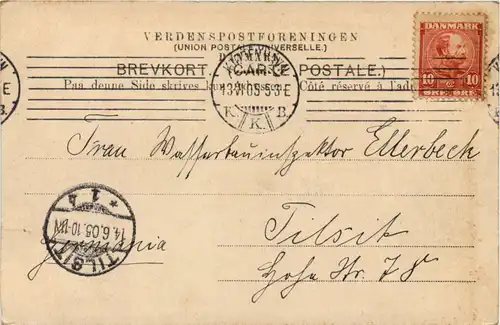 VERDENSPOSTFORENINGEN
(UNION POSTALE UNIVERSELLE.)
DANMARK
BREVKORT. (CARTE POSTALE.)
Paa denne Side skrives kun Côté réservé à l'ad
KJØBENHAVN
K. K. B.
DANMARK
10 10
ØRE ØRE
Frau Wasserbauinspektor Ellerbeck
Tilsit
Germania
Hohe Str. 78
TILSIT
14.6.05.10-11V
* 1 4